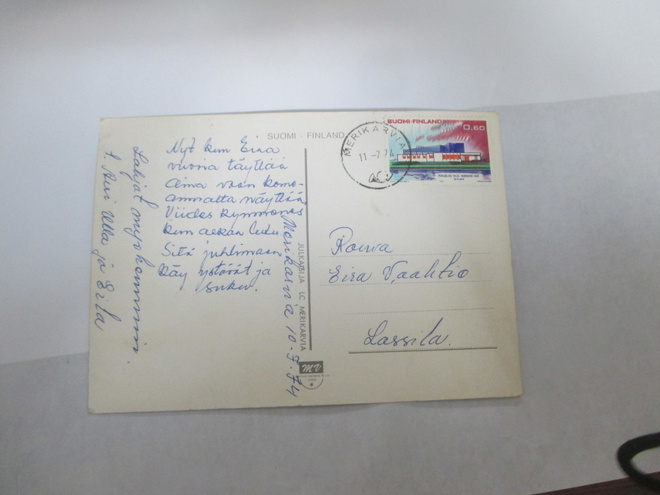 SUOMI - FINLAND
Nyt kun Eira
vuosia täyttää
aina vaan kome-
ammalta näyttää
Viides kymmenes
kun alkan luku
Sitä juhlimaan
käy ystävät ja
suku.
Lahjat myöhemmin.
t. Ulla ja Eila
Merikarvia 10-7-74
JULKAISIJA LC MERIKARVIA
MV
MERIKARVIA
11-7.74
SUOMI-FINLAND
0,60
Rouva
Eira Vaahtio
Lassila.